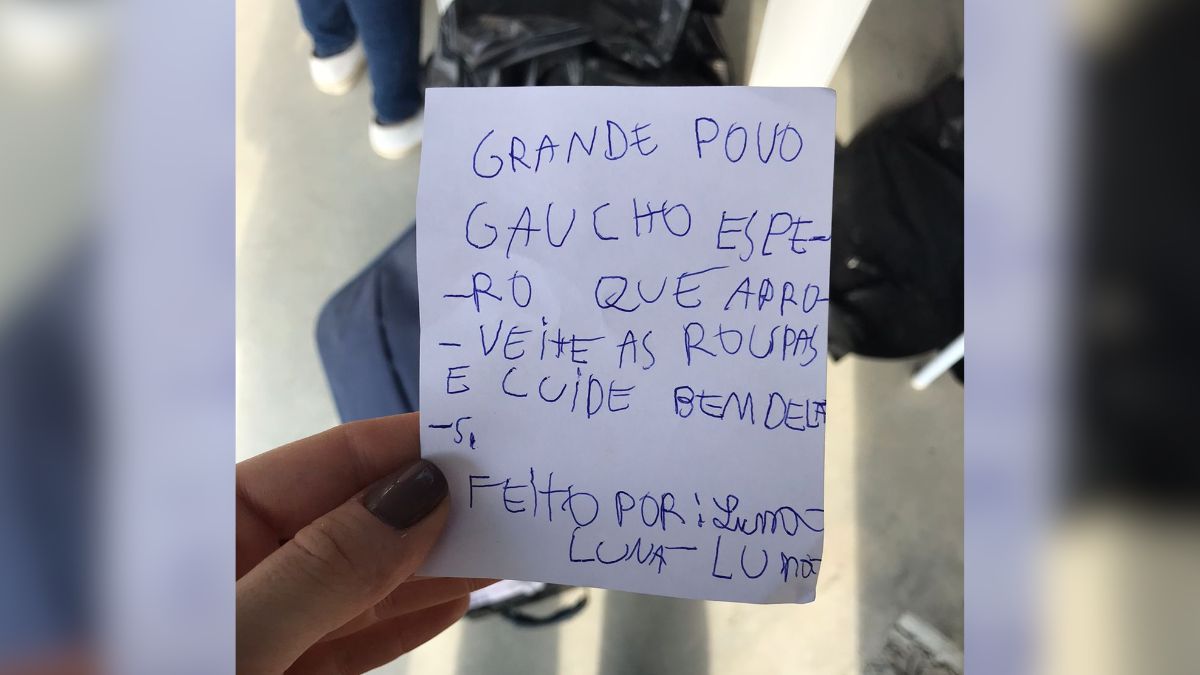 GRANDE POVO
GAUCHO ESPE-
-RO QUE APRO-
-VEITE AS ROUPAS
E CUIDE BEM DELA
-S.
FEITO POR: Luna
LUNA LUna